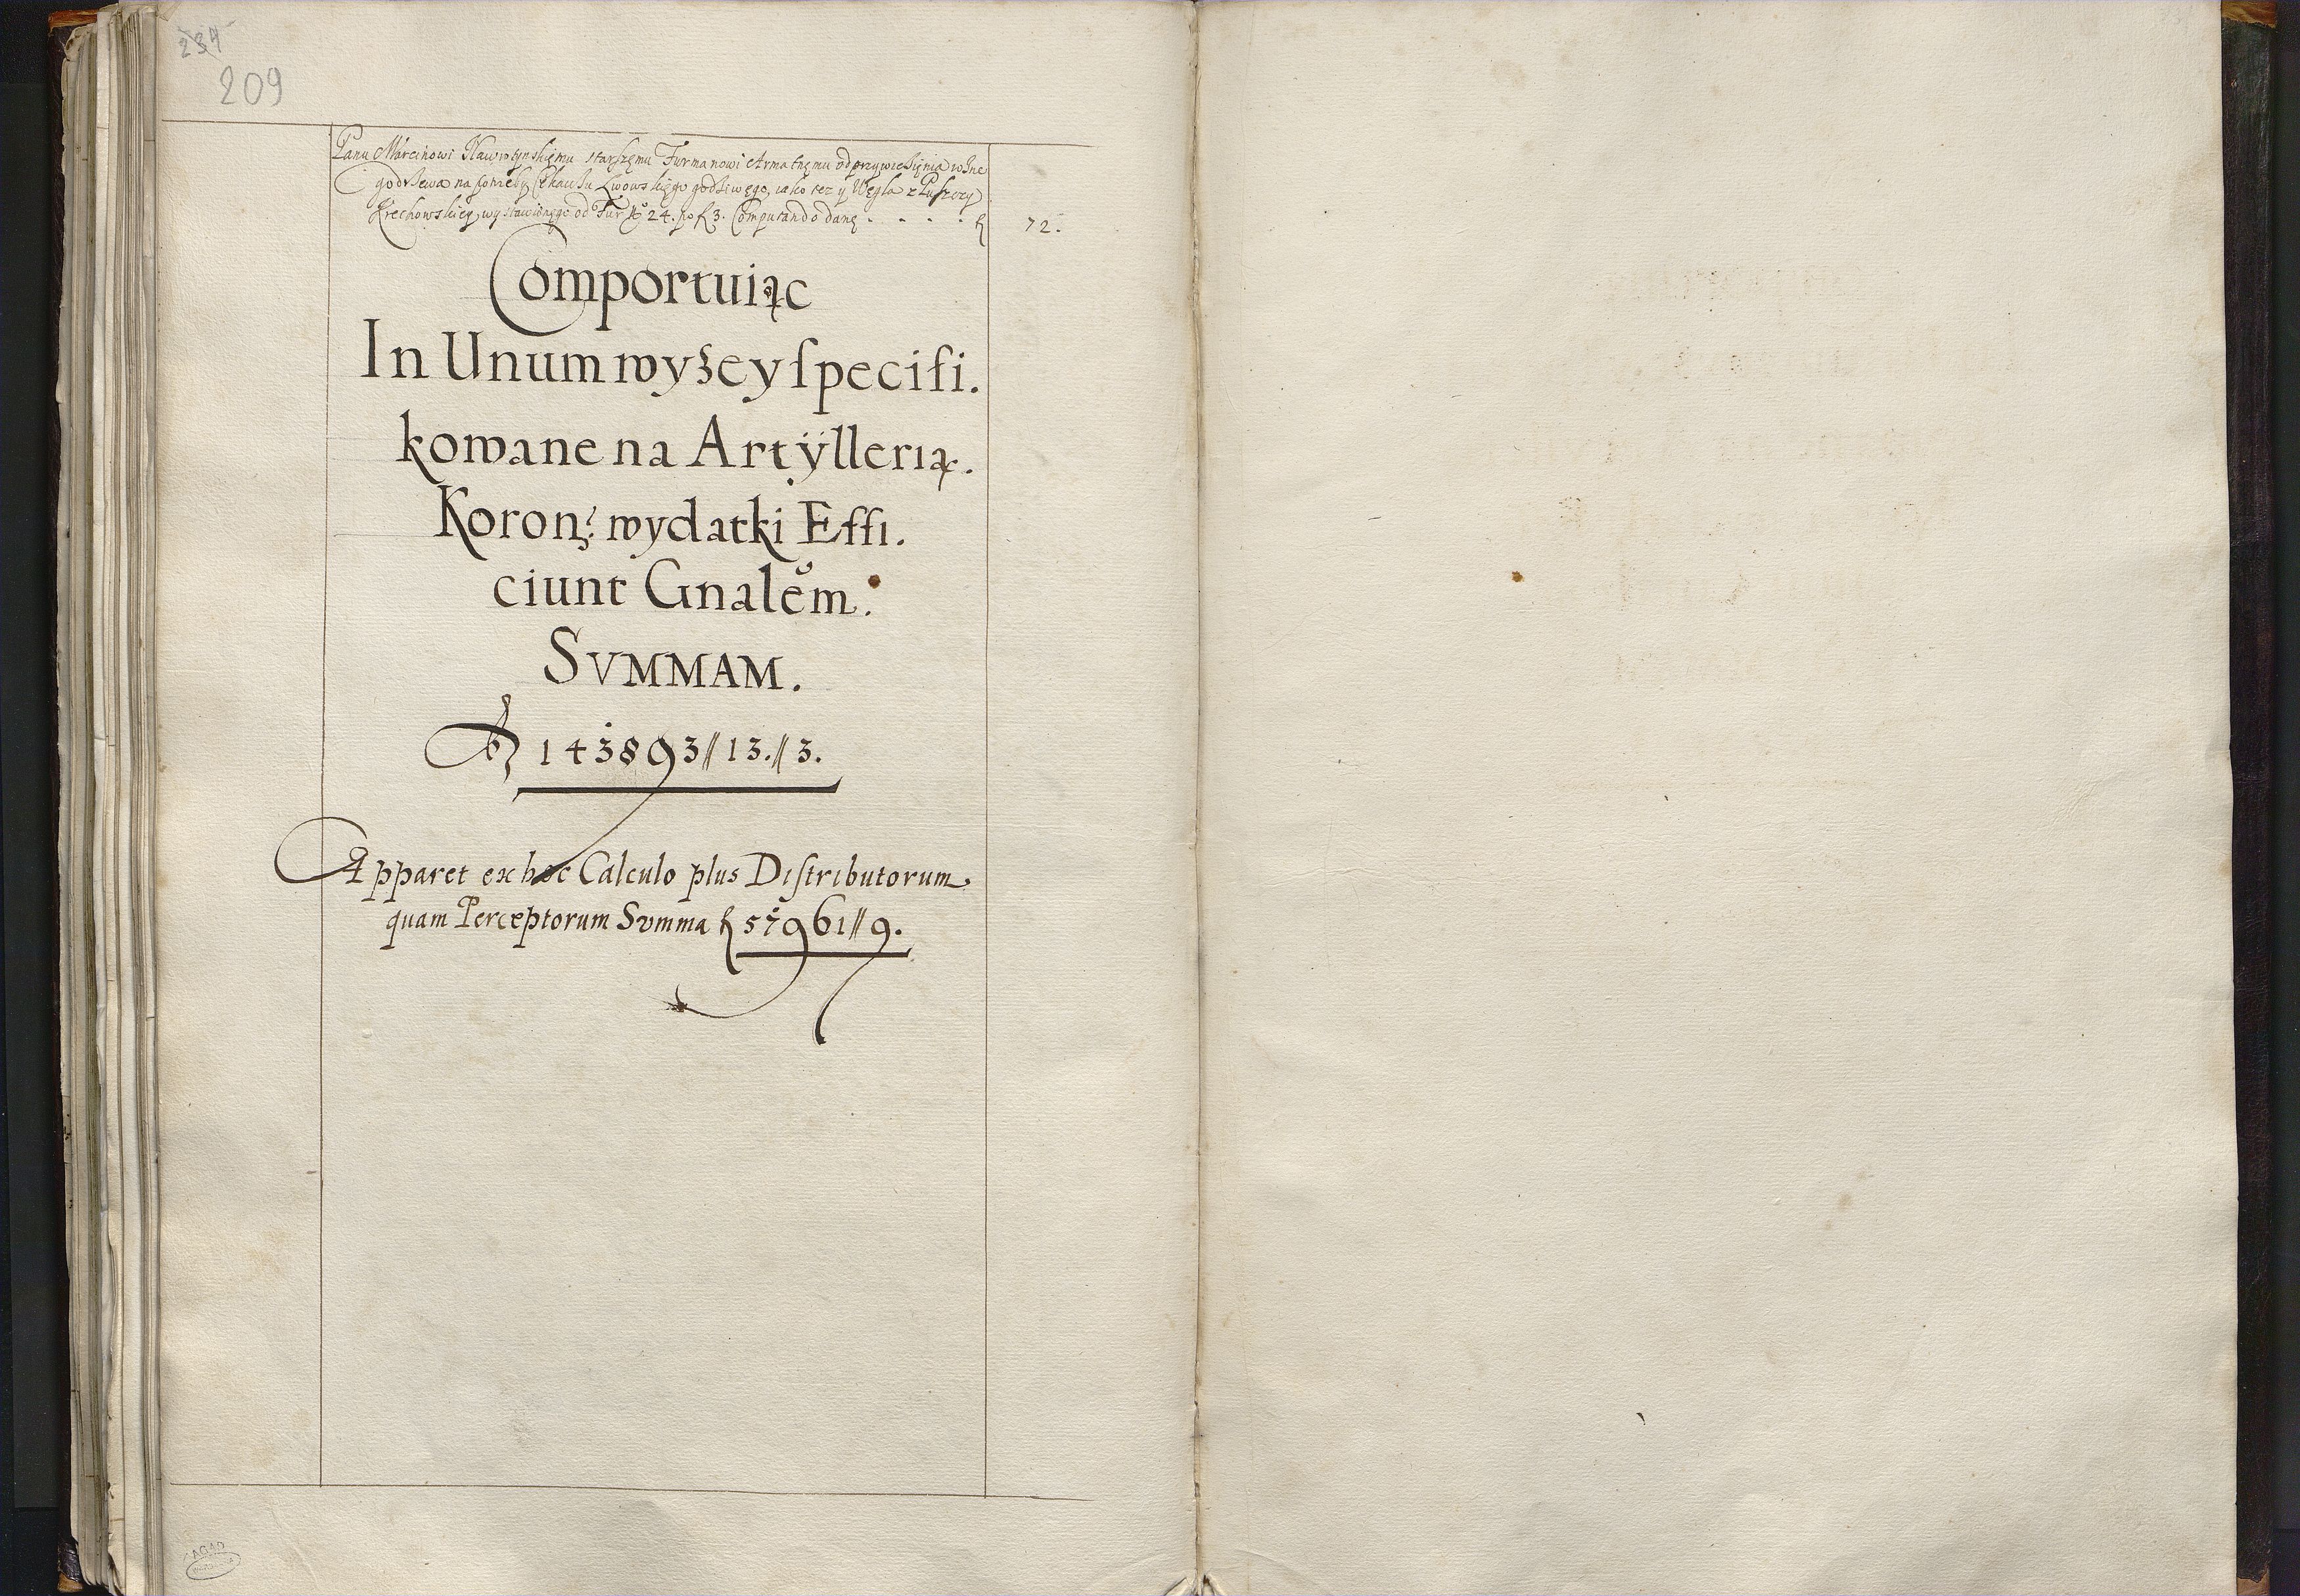 234
209
Panu Marcinowi Starszęmu Furmanowi Armatnęmu od przywieźięnia
godrzewa na potrzebę Cekauzu Lwowskięgo godźiwęgo, iako tez y Węgla z Puszczy
Krechowskięy wystawionęgo od Fur No 24. po fl 3. Computando danę . . . . fl 72.
Comportuiąc
In Unum wyżey specifi.
kowane na Artÿllerią.
Koronę: wydatki Effi.
ciunt Gnalem.
SVMMAM.
fl 143893//13.//3.
Apparet ex hoc Calculo plus Distributorum
quam Perceptorum Svmma fl 57961//9.
AGAD